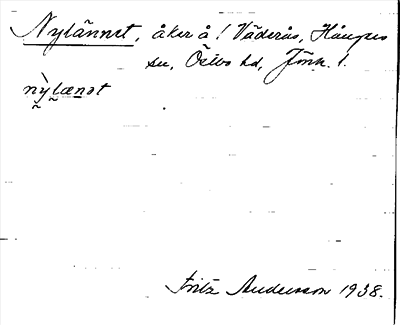 Nylännet, åker å ! Väderås, Hångers
sn, Östbo hd, Jönk. l.
nỳlænət
Fritz Andersson 1938.